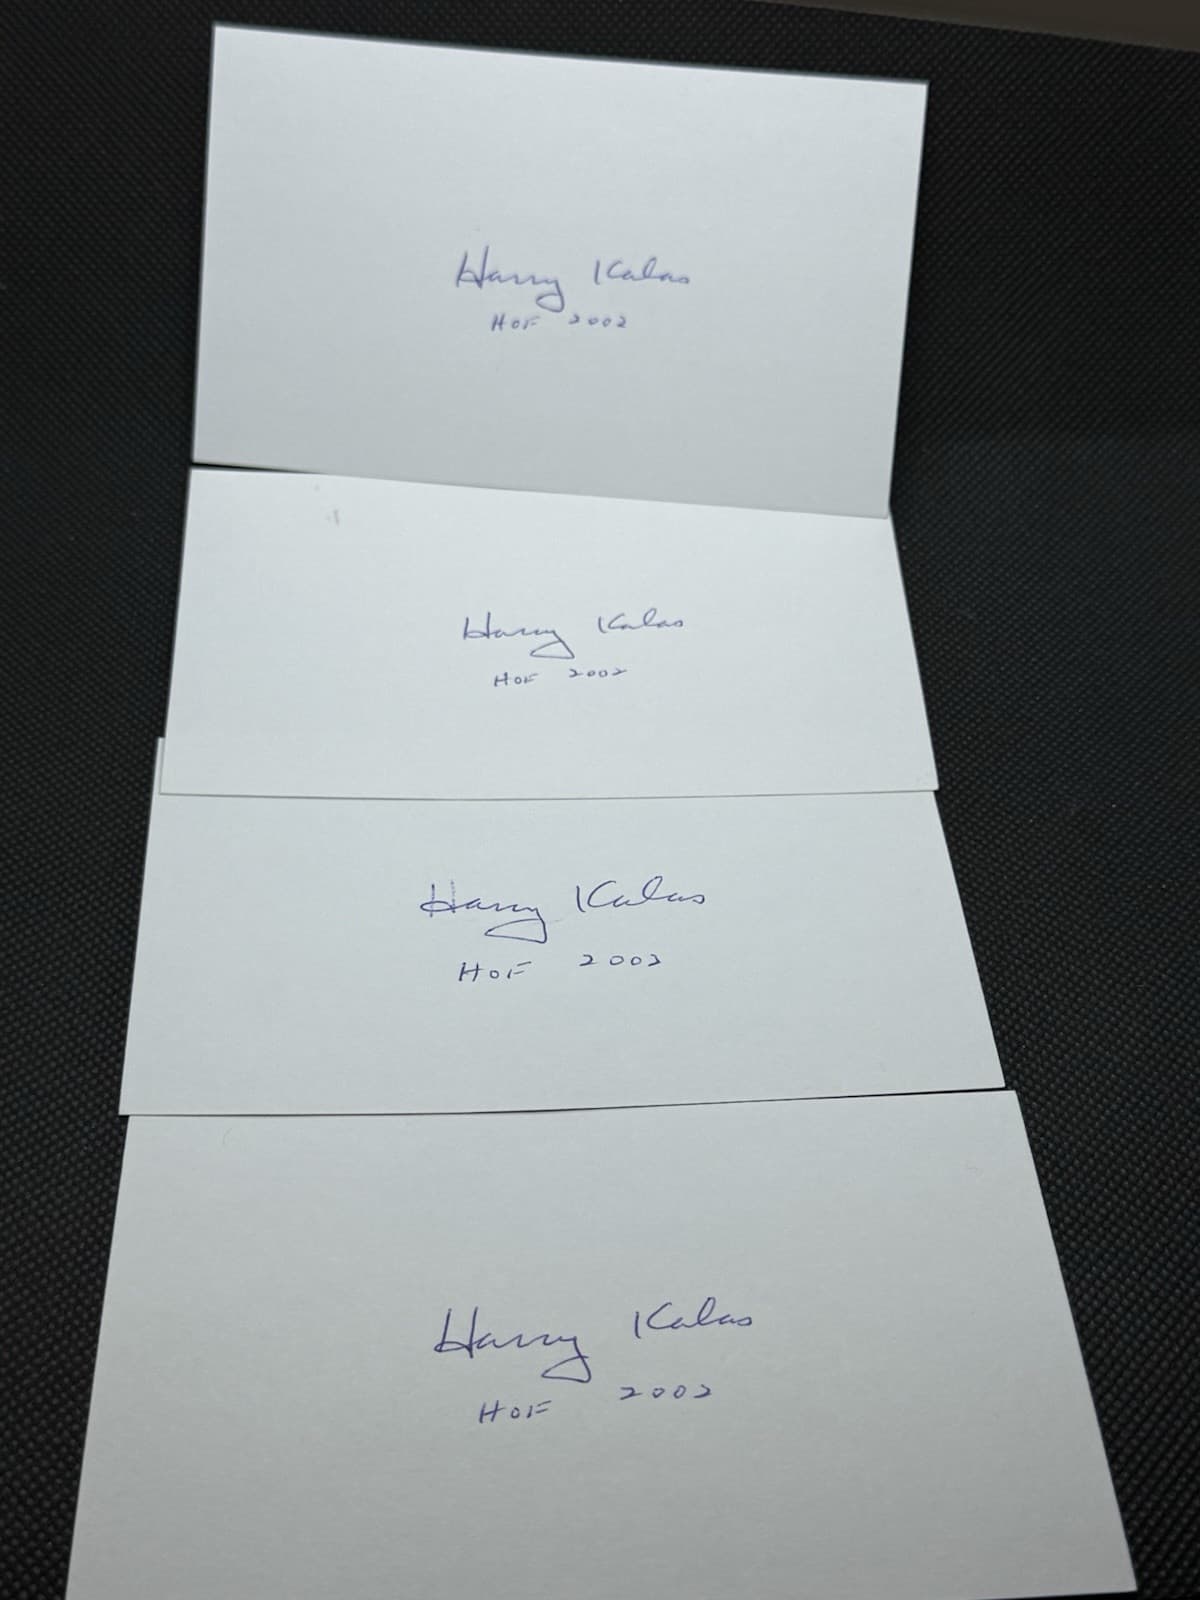 Harry Kalas
HOF 2002
Harry Kalas
HOF 2002
Harry Kalas
HOF 2002
Harry Kalas
HOF 2002